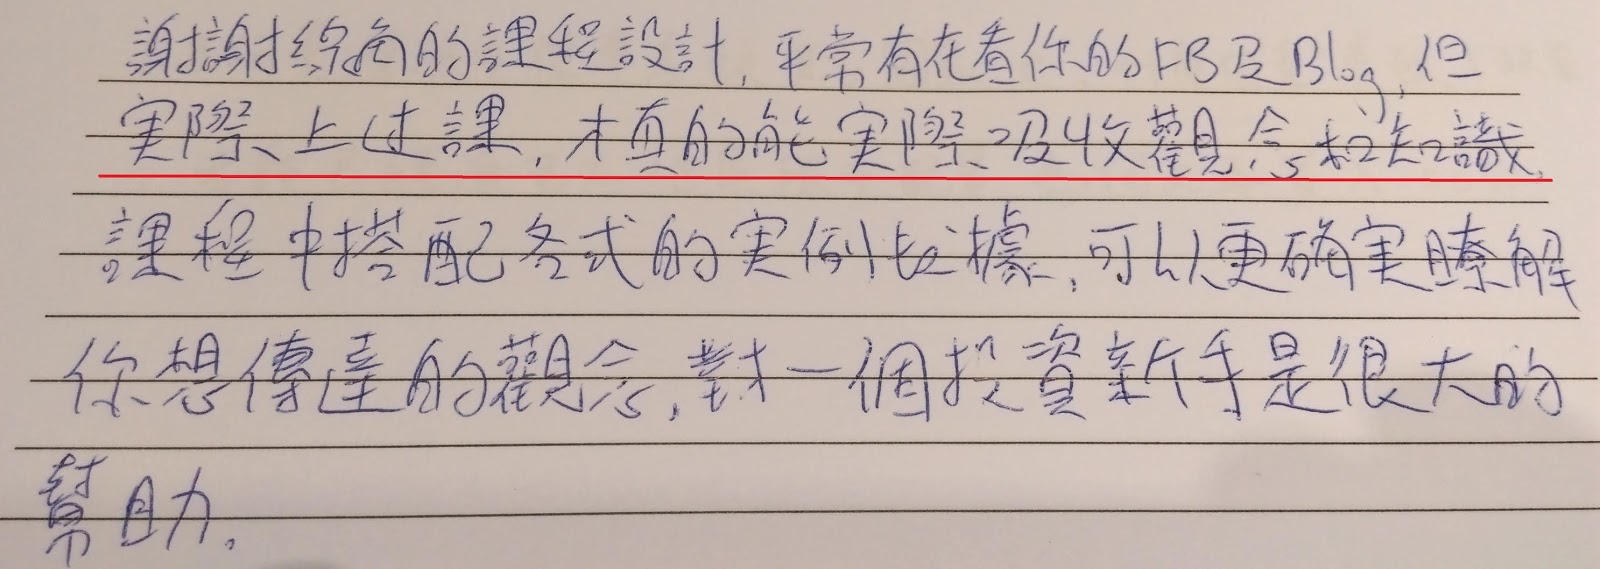 謝謝綠角的課程設計,平常有在看你的FB及Blog,但
実際上过課,才真的能実際吸收觀念和知識,
課程中搭配各式的実例比據,可以更確実瞭解
你想傳達的觀念,對一個投資新手是很大的
幫助。